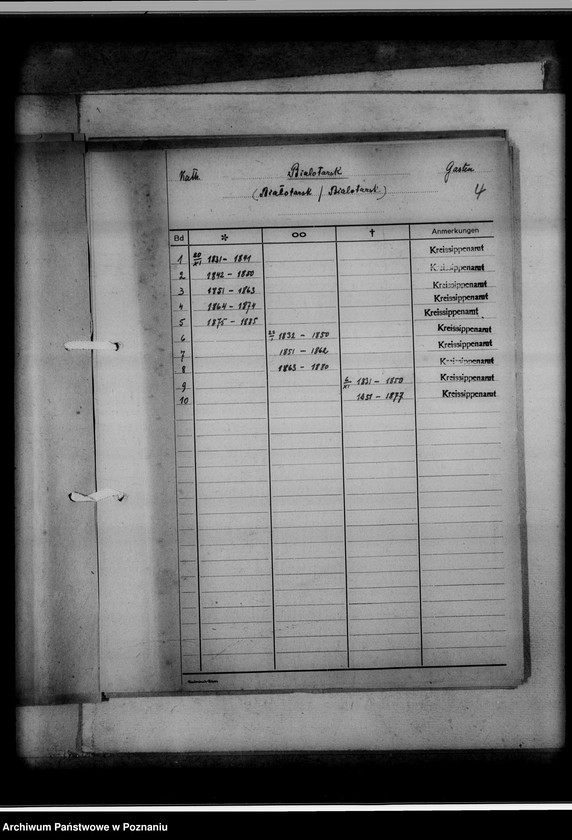 Kath. Białotarsk Gasten
(Białotarsk / Bialotarsk.) 4
Bd * ∞ † Anmerkungen
1 20/XI 1831 - 1841 Kreissippenamt
2 1842 - 1850 Kreissippenamt
3 1851 - 1863 Kreissippenamt
4 1864 - 1874 Kreissippenamt
5 1875 - 1885 Kreissippenamt
6 1832 - 1850 Kreissippenamt
7 1851 - 1862 Kreissippenamt
8 1863 - 1880 Kreissippenamt
9 1831 - 1850 Kreissippenamt
10 1851 - 1877 Kreissippenamt
Archiwum Państwowe w Poznaniu